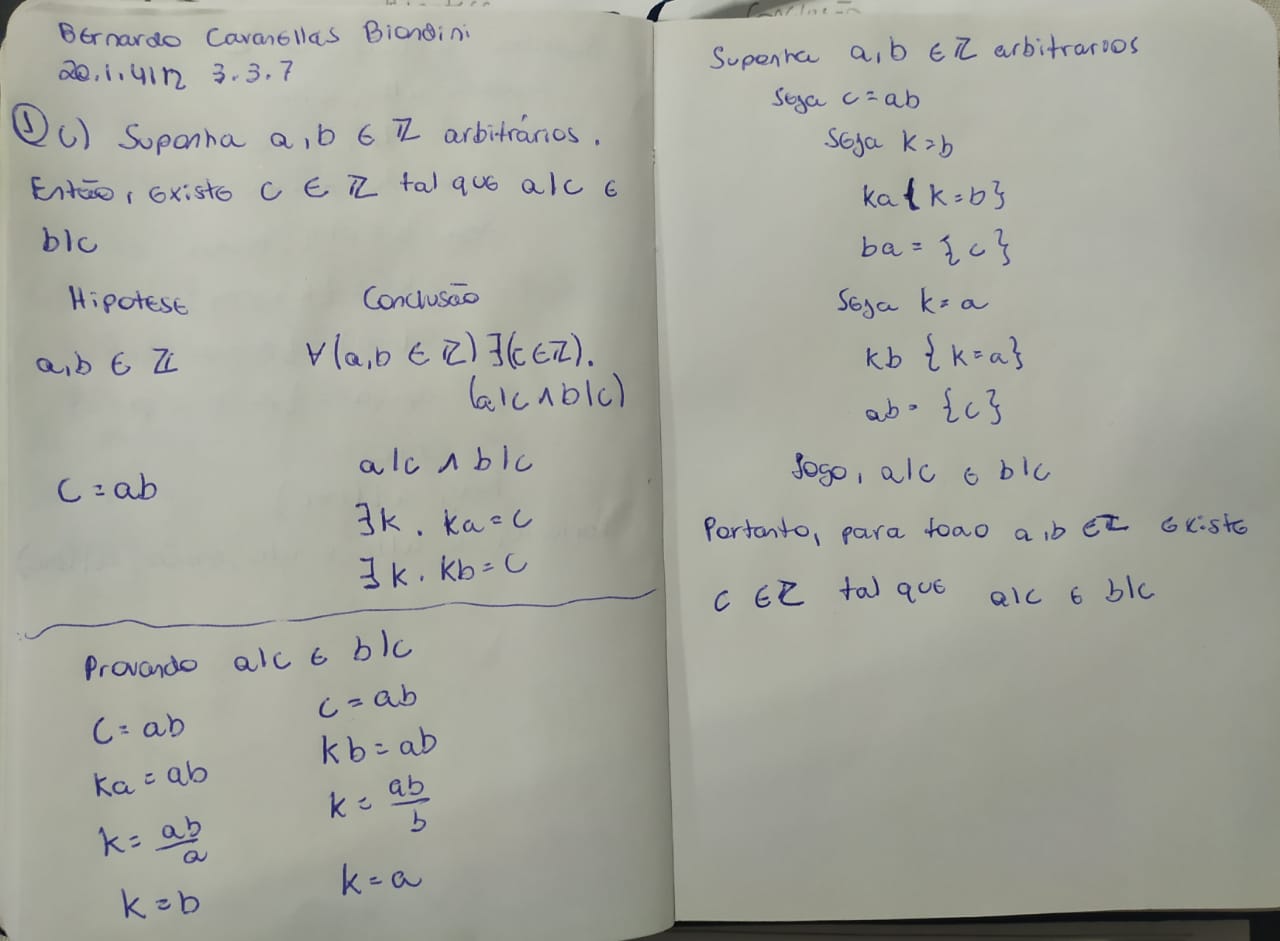 Bernardo Cavanellas Biondini
20.1.4112 3.3.7
① c) Suponha a, b ∈ ℤ arbitrários.
Então, existe c ∈ ℤ tal que a|c e
b|c
Hipotese Conclusão
a,b ∈ ℤ ∀(a,b ∈ ℤ) ∃(c∈ℤ).
(a|c ∧ b|c)
a|c ∧ b|c
c = ab
∃k. ka = c
∃k. kb = c
Provando a|c e b|c
c = ab c = ab
ka = ab kb = ab
k = ab/a k = ab/b
k = b k = a
Suponha a, b ∈ ℤ arbitrarios
Seja c = ab
Seja k = b
ka {k = b}
ba = {c}
Seja k = a
kb {k = a}
ab = {c}
Logo, a|c e b|c
Portanto, para todo a, b ∈ ℤ existe
c ∈ ℤ tal que a|c e b|c